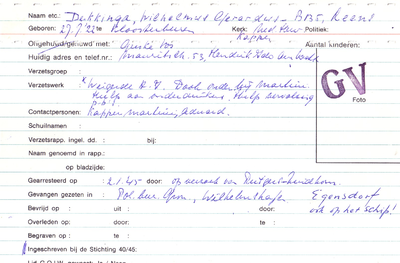 Naam etc: Dekkinga, Wilhelmus Gerardus - BBS, Keens
Geboren: 27.7.'22 te Kloosterburen Kerk: Ned Herv Politiek:
Kapper
Ongehuwd/gehuwd met: Vos Aantal kinderen:
Huidig adres en telef.nr.: Mauritsstr. 53, Hendrik Ido Ambacht
Verzetsgroep :
Verzetswerk : x Weigerde K.V. Dook onder bij Martini
Hulp aan onderduikers, Hulp bevolking
p.o.j.
Contactpersonen: Kapper Martini, Aduard.
Schuilnaam :
Verzetsrapp. ingel. dd. : bij:
Naam genoemd in rapp.:
op bladzijde:
Gearresteerd op : 2.1.'45 door: op verraad van
Gevangen gezeten in : Pol. bur. Gron., Wilhelmshafen Egensdorf
ook op het schip!
Bevrijd op : uit : door :
Overleden op : door: te :
Begraven op : te :
Ingeschreven bij de Stichting 40/45:
GV
Foto